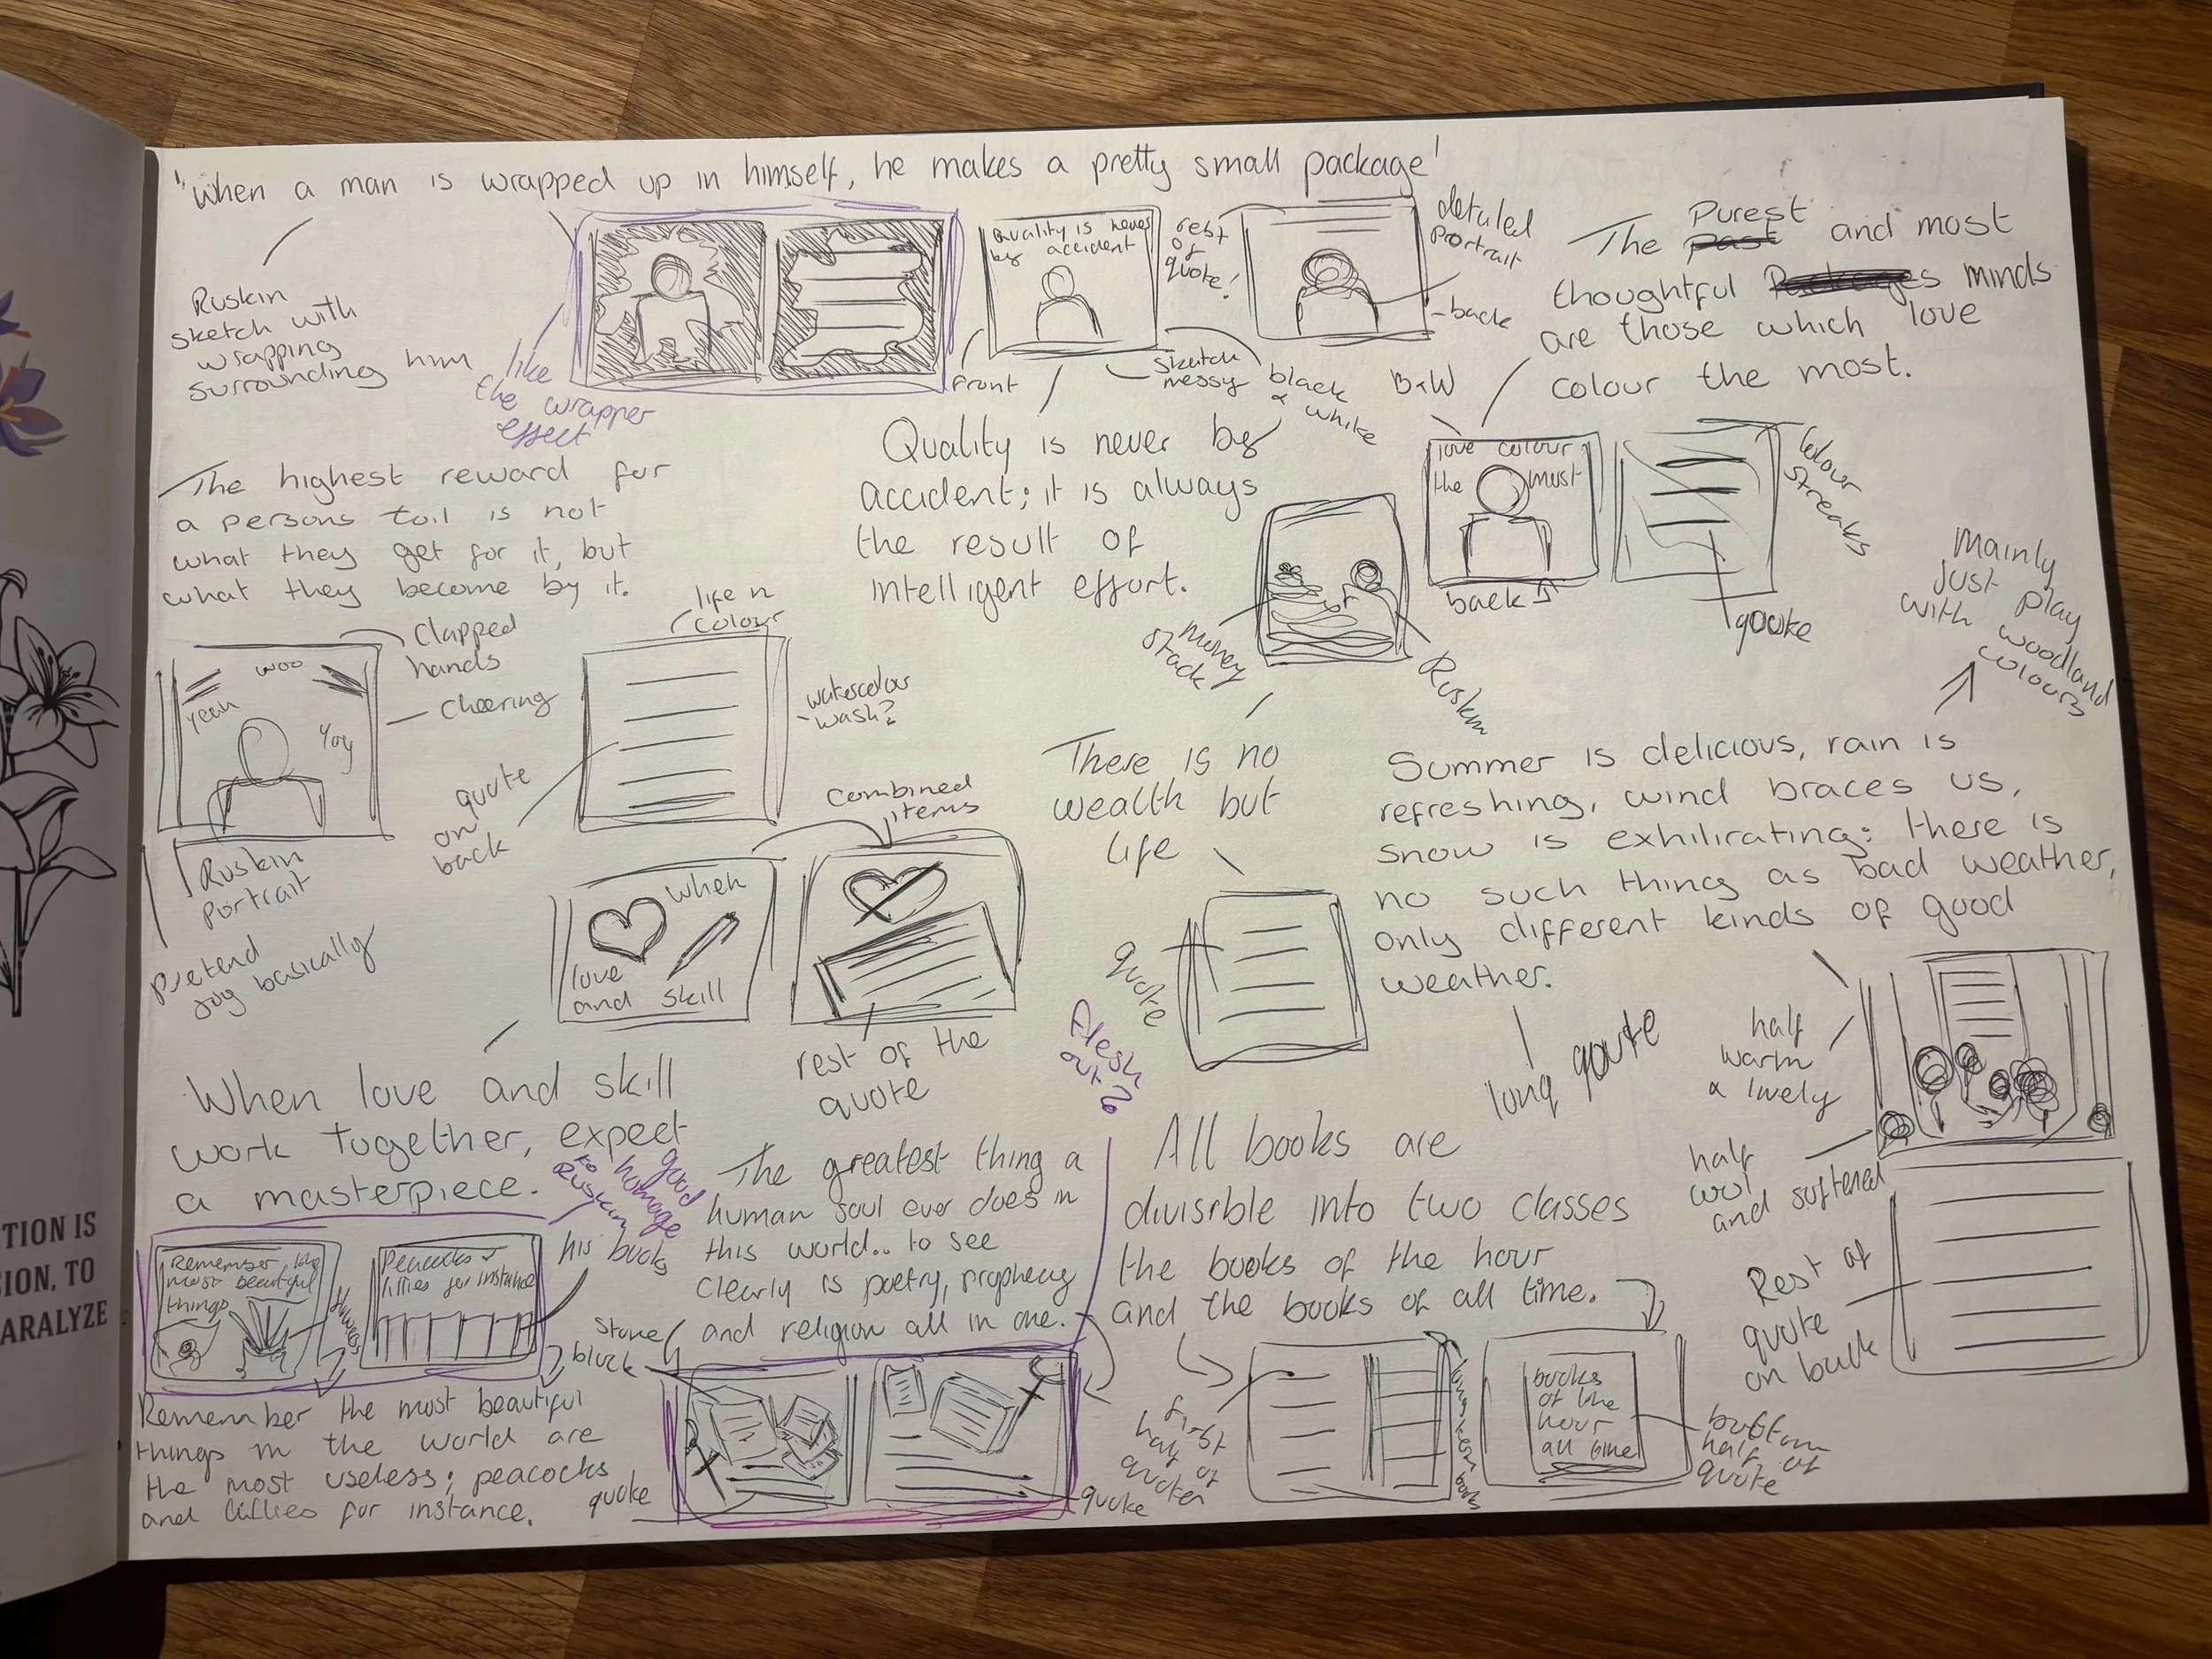 "When a man is wrapped up in himself, he makes a pretty small package'
Ruskin
sketch with
wrapping
surrounding him
like
the wrapper
effect
Quality is never
by accident
rest
of
quote!
front
sketch
messy
black
& white
detailed
portrait
back
The past Purest and most
thoughtful minds
are those which love
colour the most.
B&W
love colour
the most
back
Colour
streaks
quote
The highest reward for
a persons toil is not
what they get for it, but
what they become by it.
Quality is never by
accident; it is always
the result of
intelligent effort.
money
stack
Ruskin
Mainly
just play
with woodland
colours
Clapped
hands
Cheering
woo
Yeah
Yay
Ruskin
Portrait
Pretend
joy basically
life n
colour
watercolour
wash?
quote
on
back
There is no
wealth but
life
quote
Summer is delicious, rain is
refreshing, wind braces us,
snow is exhilirating: there is
no such thing as bad weather,
only different kinds of good
weather.
long qoute
half
warm
& lively
half
cool
and softened
Rest of
quote
on back
combined
items
When
love
and skill
rest of the
quote
When love and skill
work together, expect
a masterpiece.
good
homage
to
Ruskin
his books
Remember the
most beautiful
things
Peacocks &
lillies for instance
flowers
Remember the most beautiful
things in the world are
the most useless; peacocks
and lillies for instance.
Flesh
out?
The greatest thing a
human soul ever does in
this world.. to see
clearly is poetry, prophecy
and religion all in one.
Stone
block
quote
quote
All books are
divisible into two classes
the books of the hour
and the books of all time.
first
half of
quote
books
of the
hour
all time
bottom
half of
quote
TION IS
SION, TO
ARALYZE